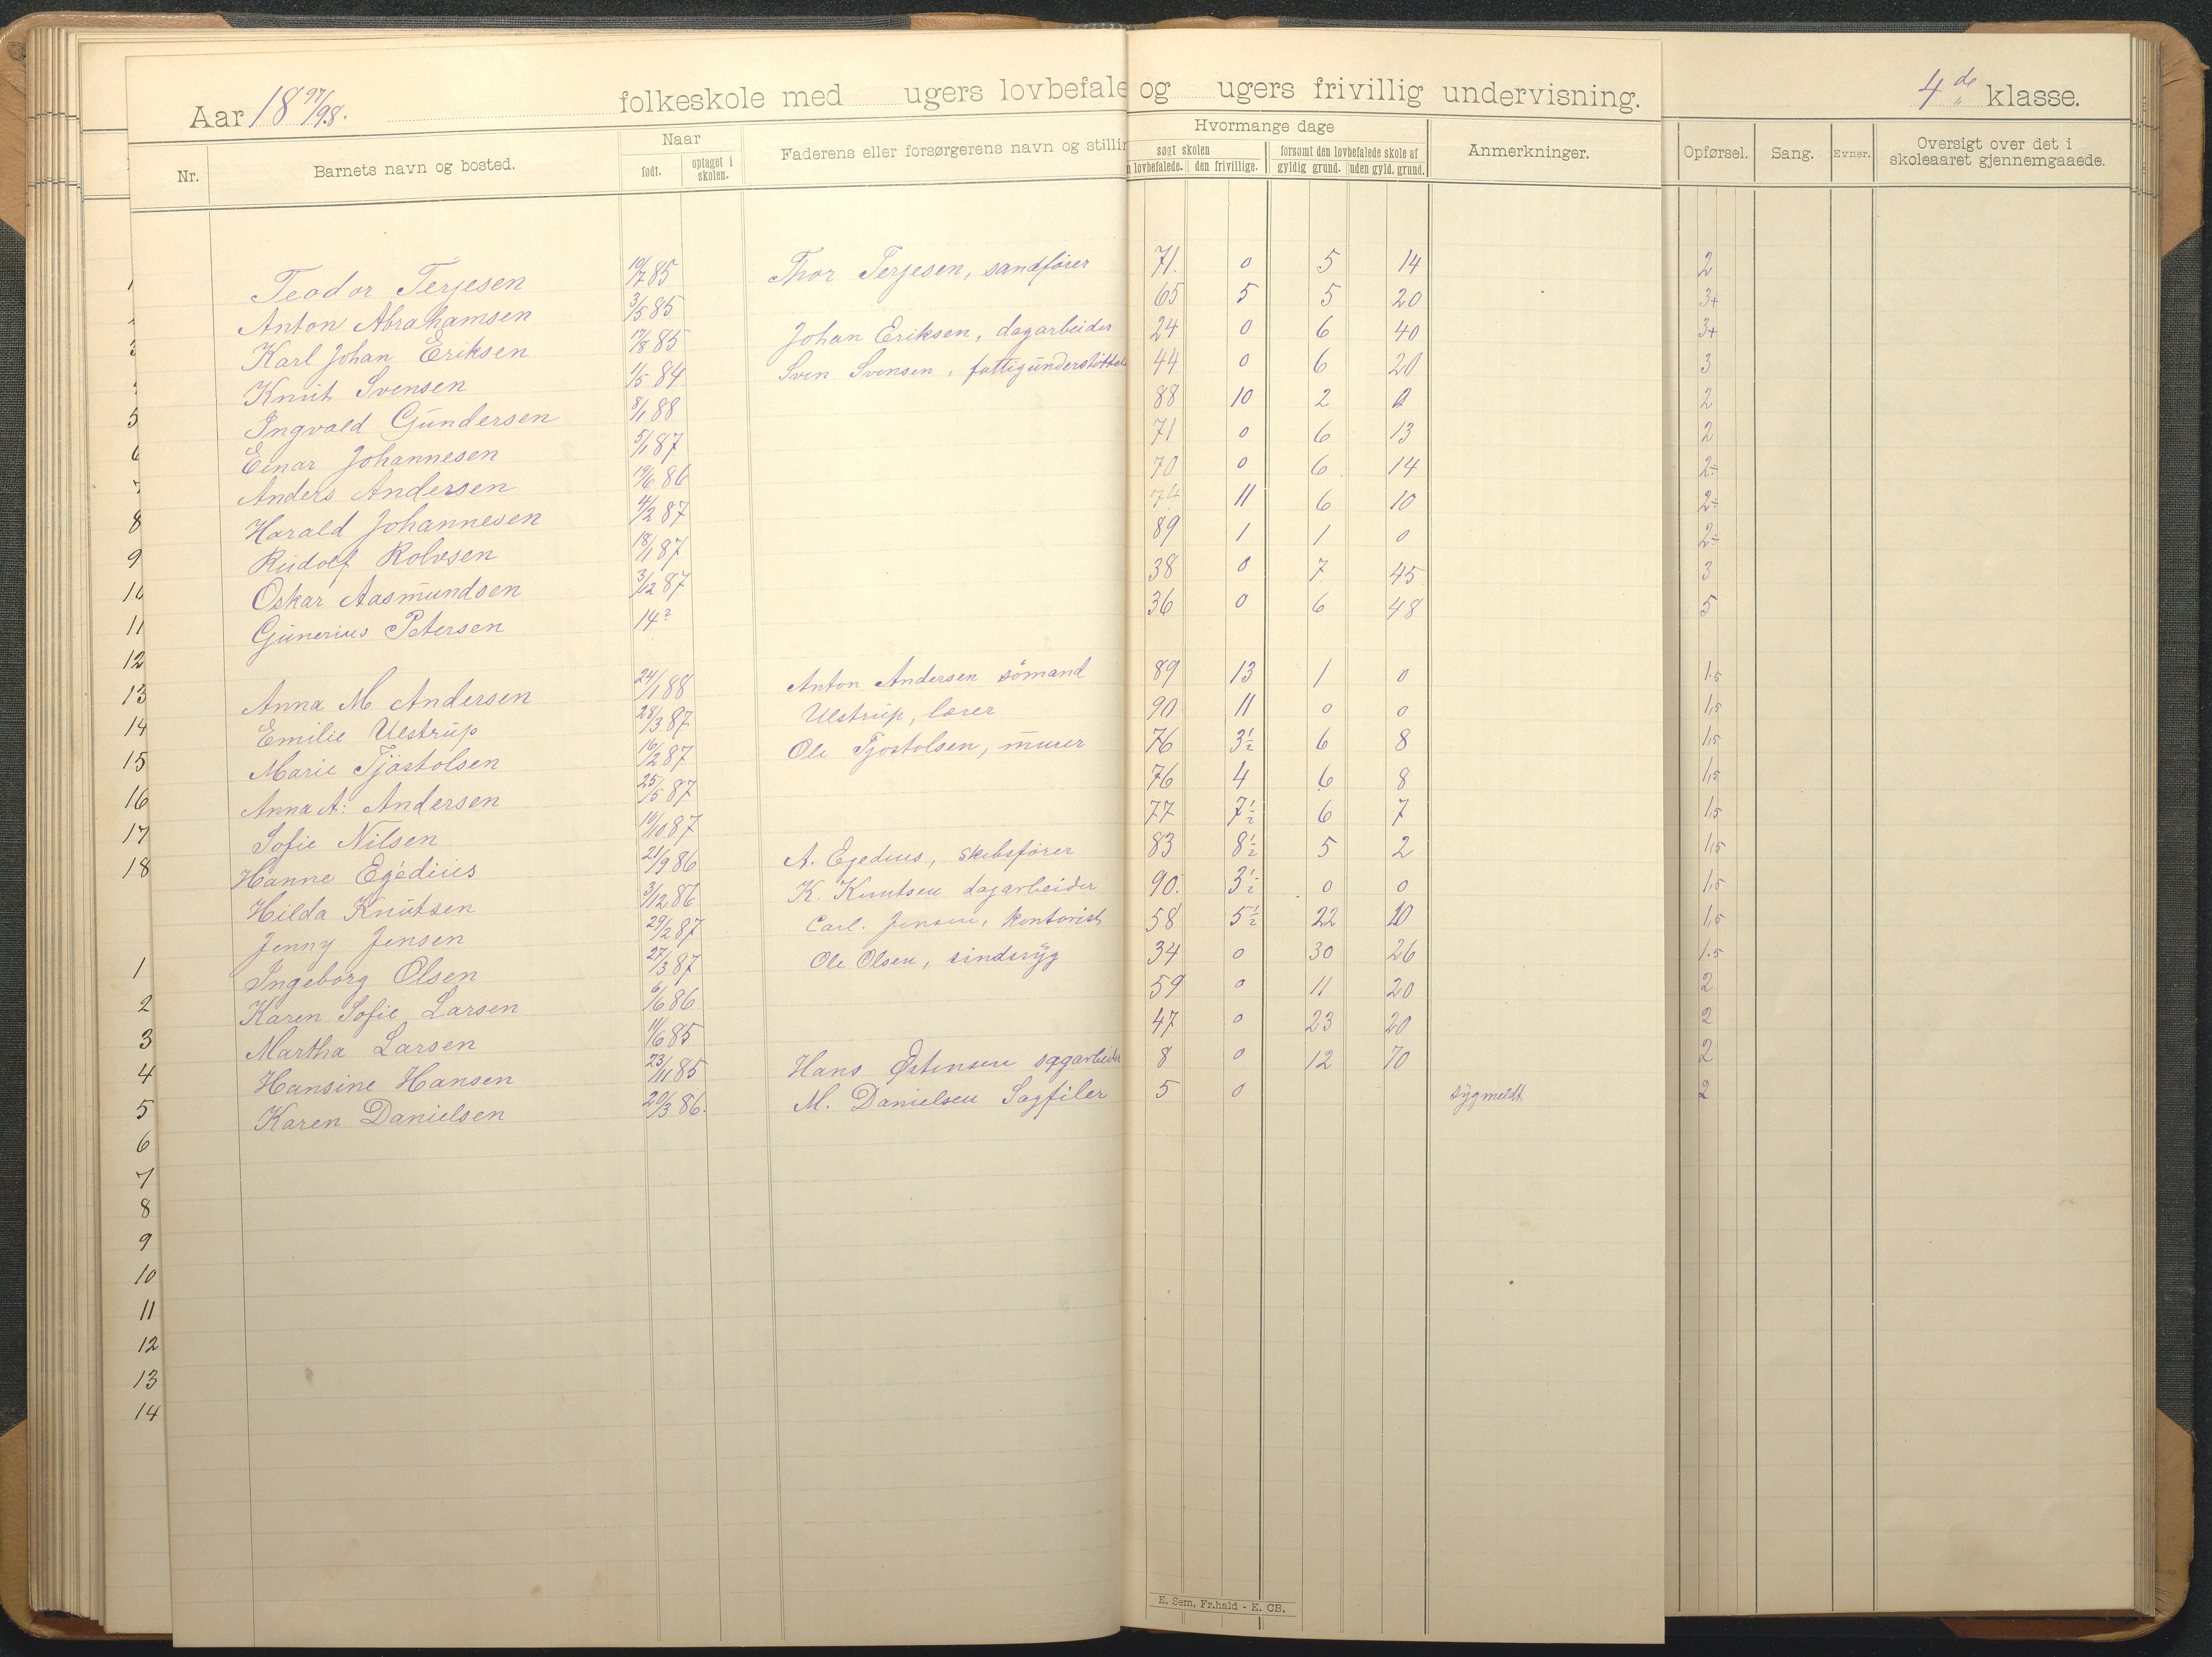 Aar 18 97/98. folkeskole med ugers lovbefale og ugers frivillig undervisning. 4de klasse.
Nr. Barnets navn og bosted. Naar født. optaget i skolen. Faderens eller forsørgerens navn og stillin Hvormange dage søgt skolen n lovbefalede. den frivillige. forsømt den lovbefalede skole af gyldig grund. uden gyld. grund. Anmerkninger. Opførsel. Sang. Evner. Oversigt over det i skoleaaret gjennemgaaede.
Teodor Terjesen 19/7 85 Thor Terjesen, sandfører 71. 0 5 14 2
Anton Abrahamsen 3/5 85 65 5 5 20 3+
Karl Johan Eriksen 17/8 85 Johan Eriksen, dagarbeider 24 0 6 40 3+
Knut Svensen 1/5 84 Sven Svensen, fattigunderstøttet 44 0 6 20 3
Ingvald Gundersen 8/1 88 88 10 2 0 2
Einar Johannesen 5/1 87 71 0 6 13 2
Anders Andersen 19/6 86 70 0 6 14 2÷
Harald Johannesen 4/2 87 74 11 6 10 2÷
Rudolf Rolvsen 18/1 87 89 1 1 0 2÷
Oskar Aasmundsen 3/12 87 38 0 7 45 3
Gunerius Petersen 14? 36 0 6 48 5
Anna M Andersen 24/1 88 Anton Andersen sömand 89 13 1 0 1.5
Emilie Ulstrup 28/3 87 Ulstrup, lærer 90 11 0 0 1,5
Marie Tjöstolsen 16/2 87 Ole Tjostolsen, murer 76 3½ 6 8 1,5
Anna A: Andersen 25/5 87 76 4 6 8 1,5
Sofie Nilsen 10/10 87 77 7½ 6 7 1,5
Hanne Egédius 21/9 86 A. Egedius, skibsfører 83 8½ 5 2 1,5
Hilda Knutsen 3/12 86 K. Knutsen dagarbeider 90. 3½ 0 0 1,5
Jenny Jensen 29/2 87 Carl. Jensen, kontorist 58 5½ 22 10 1,5
Ingeborg Olsen 27/3 87 Ole Olsen, sindsyg 34 0 30 26 1.5
Karen Sofie Larsen 6/6 86 59 0 11 20 2
Martha Larsen 11/6 85 47 0 23 20 2
Hansine Hansen 23/11 85 Hans Østensen sagarbeider 8 0 12 70 2
Karen Danielsen 20/3 86. M. Danielsen Sagfiler 5 0 sygmeldt 2
5
6
8
9
10
11
12
13
14
15
16
17
18
1
2
3
4
5
6
7
8
9
10
11
12
13
14
E. Sem, Fr.hald - E. CB.